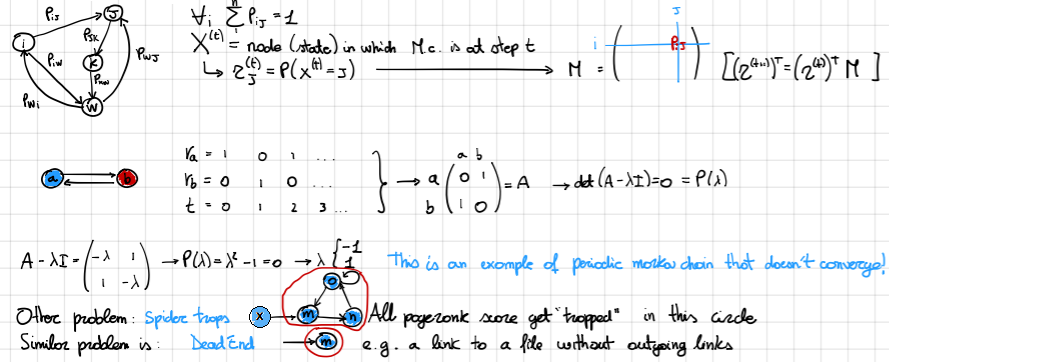 P_ij
J
P_JK
i
P_iw
K
P_wJ
P_Kw
P_wi
W
∀i ∑^n P_iJ = 1
X^(t) = node (state) in which M.c. is at step t
↳ r_J^(t) = P(x^(t) = J) → M = ( i J P_iJ ) [(r^(t+1))^T = (r^(t))^T M ]
a b
r_a = 1 0 1 ...
r_b = 0 1 0 ...
t = 0 1 2 3 ...
a b
a ( 0 1
b 1 0 ) = A → det (A-λI) = 0 = P(λ)
A - λI = ( -λ 1
1 -λ ) → P(λ) = λ² - 1 = 0 → λ { -1
1
This is an example of periodic markov chain that doesn't converge!
Other problem: Spider traps X m n o All pagerank score get "trapped" in this circle
Similar problem is: Dead End → m e.g. a link to a file without outgoing links